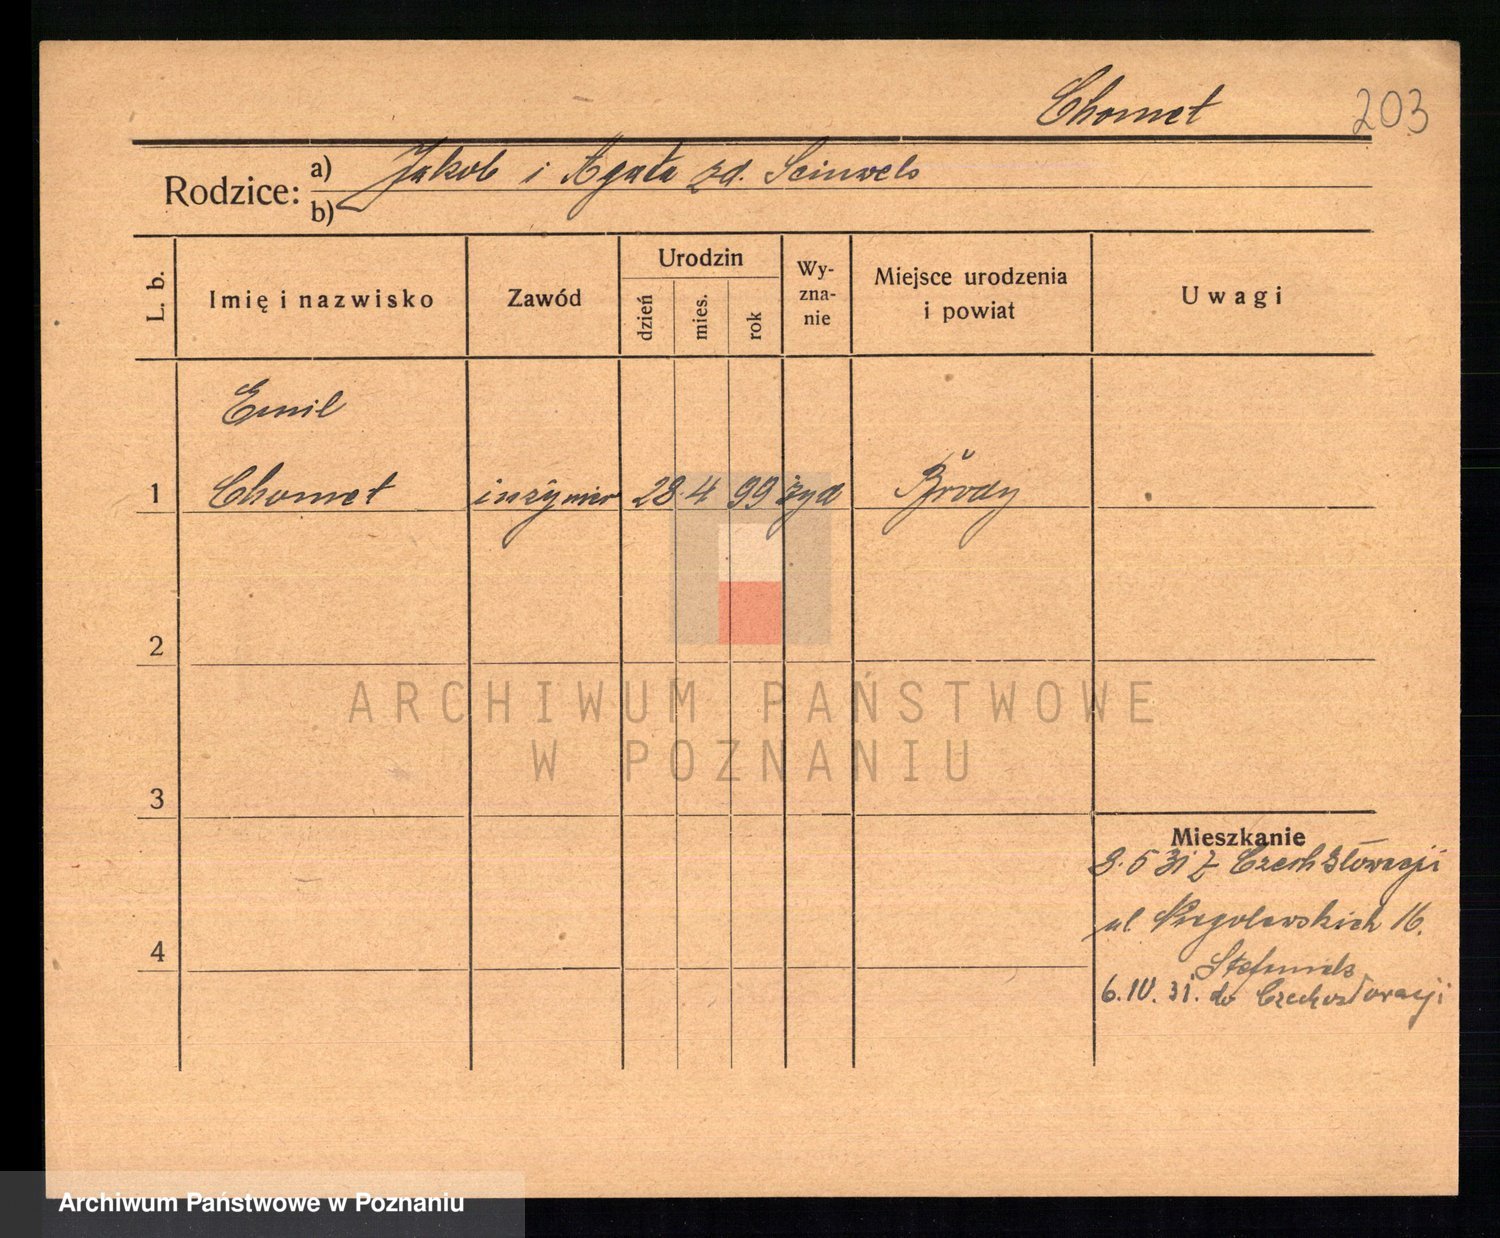 Chomet 203
Rodzice: a) Jakob i Agata zd. Seinwels
b)
L. b. Imię i nazwisko Zawód Urodzin dzień mies. rok Wyznanie Miejsce urodzenia i powiat Uwagi
Emil
1 Chomet inżynier 28. 4 99 żyd Brody
2
3
Mieszkanie
8. 5 31 z Czechsłowacji
ul. Niegolewskich 16.
4
6. IV. 31. do Czechosłowacji
ARCHIWUM PAŃSTWOWE
W POZNANIU
Archiwum Państwowe w Poznaniu